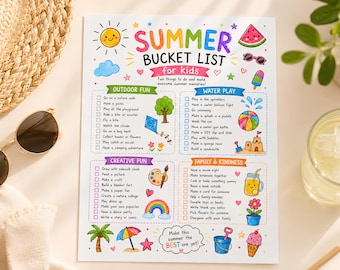 SUMMER
BUCKET LIST
for kids
Fun things to do and make
awesome summer memories!
OUTDOOR FUN
Go on a nature walk
Have a picnic
Play at the playground
Ride a bike or scooter
Fly a kite
Watch the clouds
Go on a bug hunt
Collect leaves or flowers
Play in the sand
Have a camping adventure
WATER PLAY
Play in the sprinklers
Have a water balloon fight
Go swimming
Make a splash in a puddle
Wash the car
Have a water gun battle
Play with boats
Make a sponge race
Build a sandcastle
CREATIVE FUN
Draw with sidewalk chalk
Paint a picture
Make a craft
Build a blanket fort
Make a paper fan
Create a nature collage
Play with play dough
Make your own popsicles
Have a dance party
Write a story or comic
FAMILY & KINDNESS
Have a movie night
Make homemade lemonade
Call or help something yummy
Read a book outside
Make a card for someone
Help a family member
Donate toys or books
Write thank you notes
Pick flowers for someone
Stargaze with your family
Make this
summer the
BEST one yet!